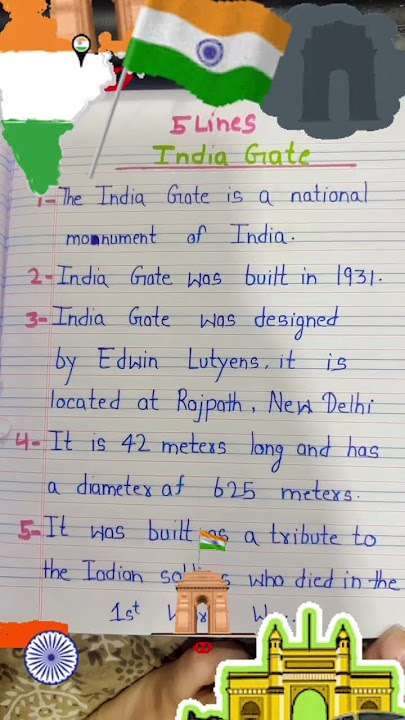 5 Lines
India Gate
1- The India Gate is a national
monument of India.
2- India Gate was built in 1931.
3- India Gate was designed
by Edwin Lutyens, it is
located at Rajpath, New Delhi
4- It is 42 meters long and has
a diameter of 625 meters.
5- It was built as a tribute to
the Indian who died in the
1st